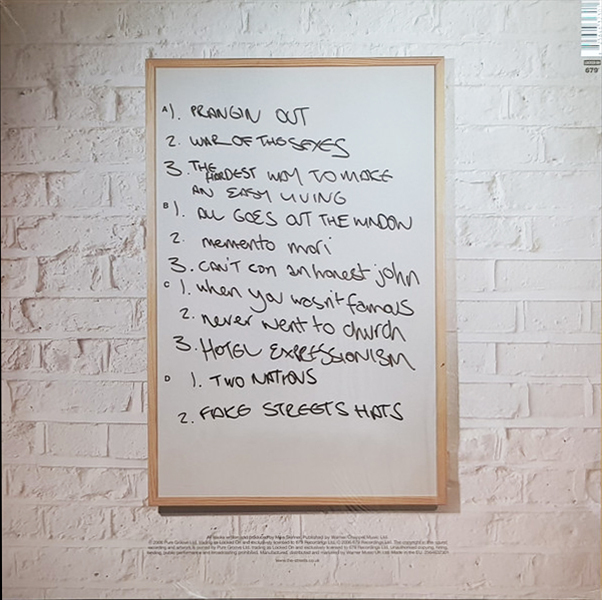 679
A 1. PRANGIN OUT
2. WAR OF THE SEXES
3. THE HARDEST WAY TO MAKE
AN EASY LIVING
B 1. ALL GOES OUT THE WINDOW
2. memento mori
3. CAN'T con an honest john
C 1. when you wasn't famous
2. never went to church
3. HOTEL EXPRESSIONISM
D 1. TWO NATIONS
2. FAKE STREETS HATS
www.the-streets.co.uk